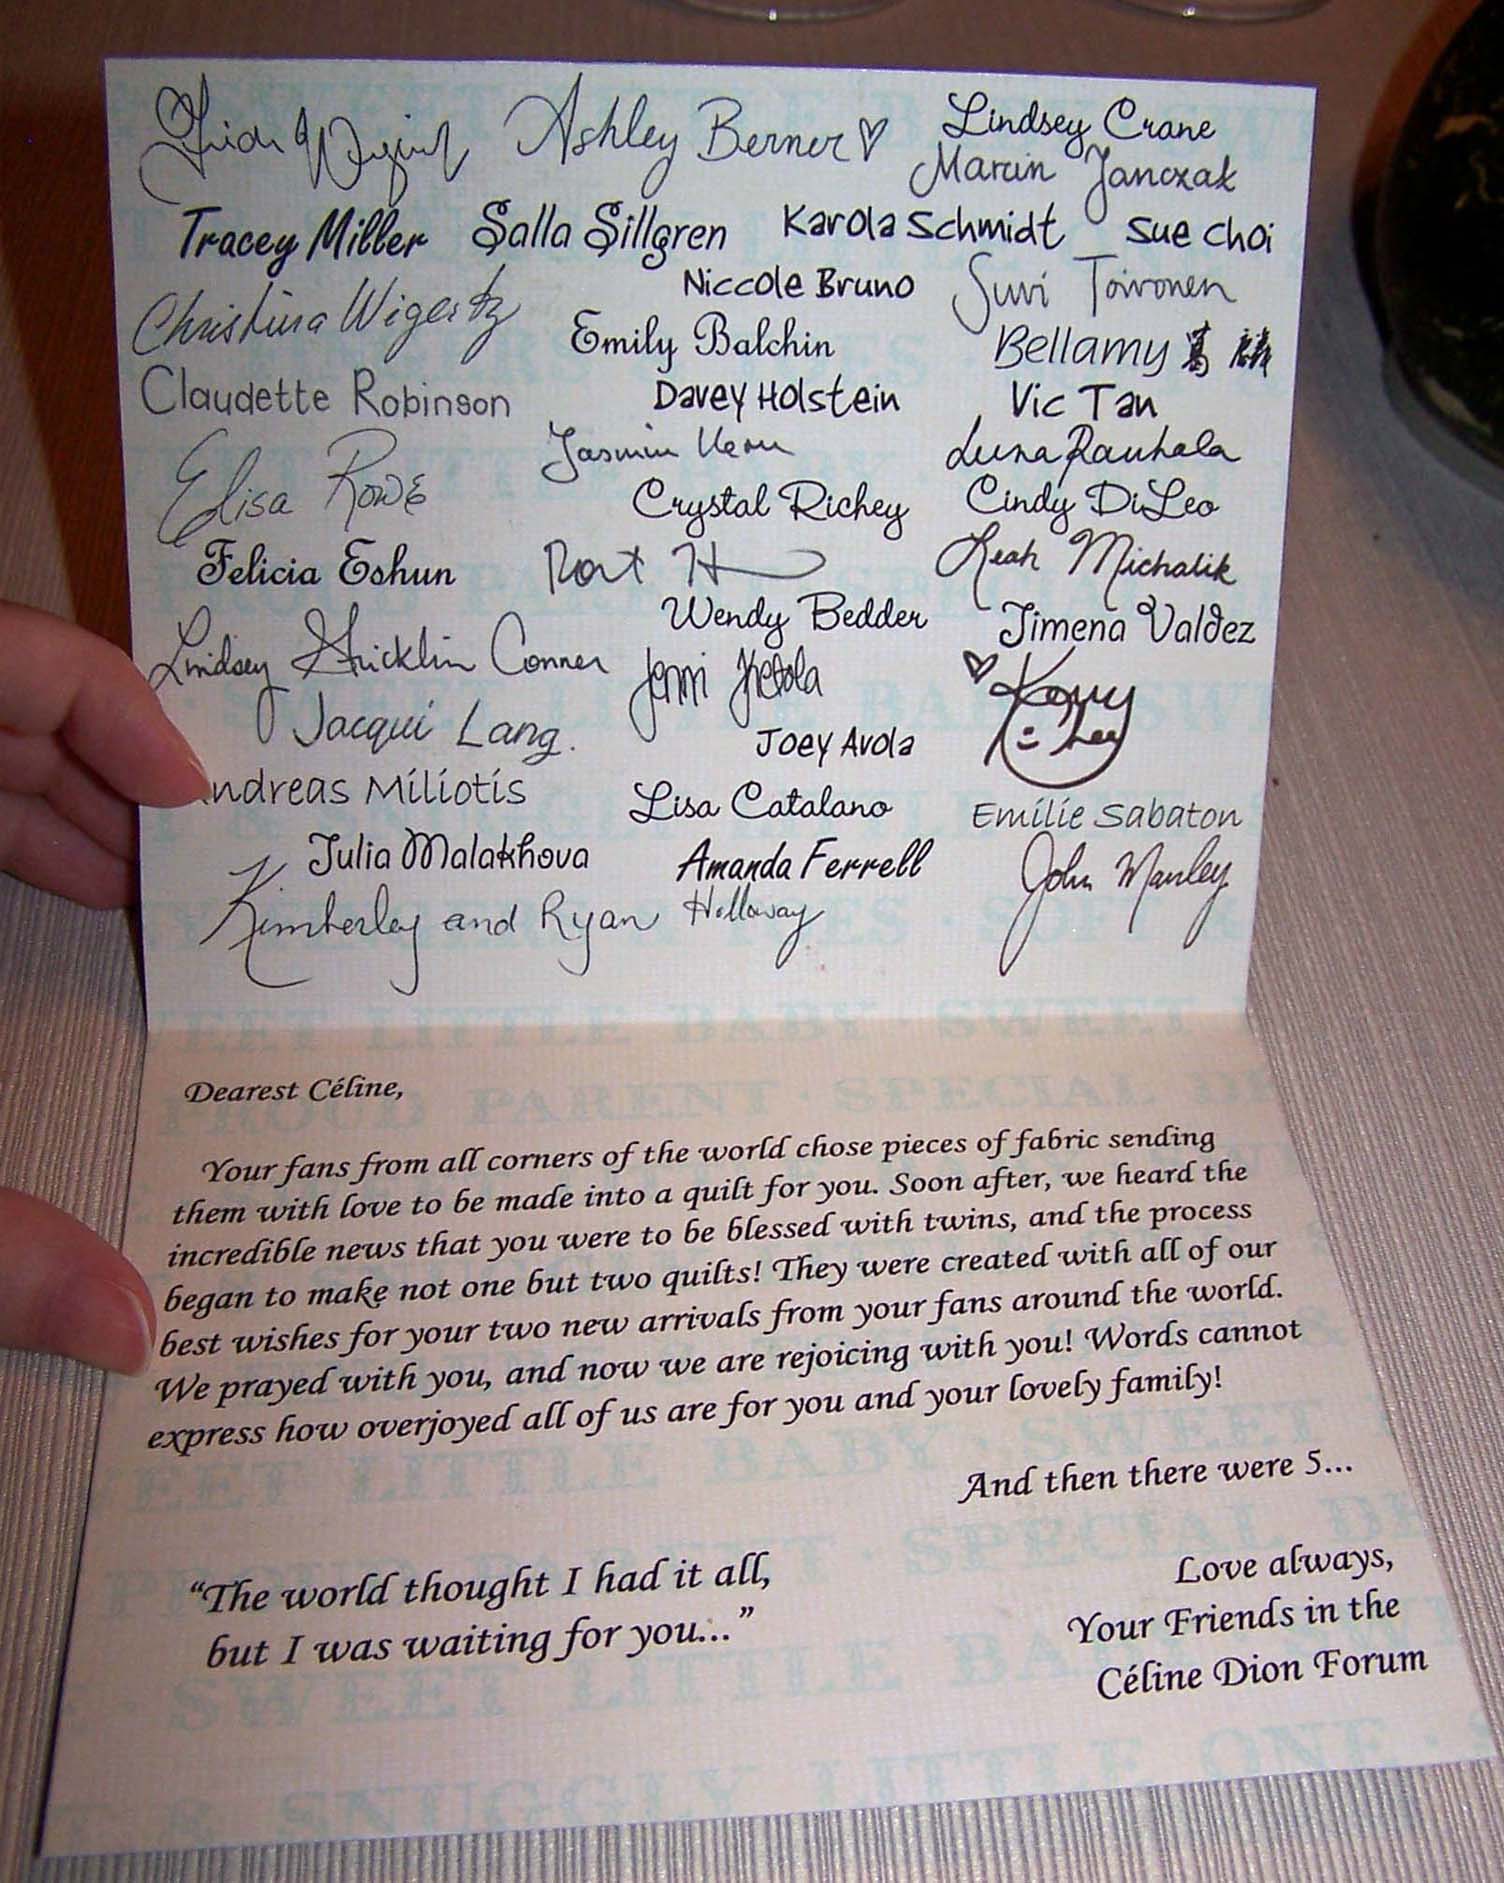 Ashley Berner
Lindsey Crane
Marcin Janczak
Tracey Miller
Salla Sillgren
Karola Schmidt
Sue Choi
Niccole Bruno
Suvi Toivonen
Christina Wigertz
Emily Balchin
Bellamy
Claudette Robinson
Davey Holstein
Vic Tan
Jasmin
Luna Rauhala
Elisa Rowe
Crystal Richey
Cindy DiLeo
Felicia Eshun
Leah Michalik
Wendy Bedder
Jimena Valdez
Lindsey Stricklin Conner
Jenni Ketola
Kerry
Lee
Jacqui Lang.
Joey Avola
ndreas Miliotis
Lisa Catalano
Emilie Sabaton
Julia Malakhova
Amanda Ferrell
John Manley
Kimberley and Ryan Holloway
EET LITTLE BABY · SWEET
Dearest Céline,
PROUD PARENT · SPECIAL DE
Your fans from all corners of the world chose pieces of fabric sending
them with love to be made into a quilt for you. Soon after, we heard the
incredible news that you were to be blessed with twins, and the process
began to make not one but two quilts! They were created with all of our
best wishes for your two new arrivals from your fans around the world.
We prayed with you, and now we are rejoicing with you! Words cannot
express how overjoyed all of us are for you and your lovely family!
EET LITTLE BABY · SWEET
And then there were 5...
SPECIAL DE
"The world thought I had it all,
but I was waiting for you..."
Love always,
Your Friends in the
Céline Dion Forum
SWEET LITTLE BA
SNUGGLY LITTLE ONE